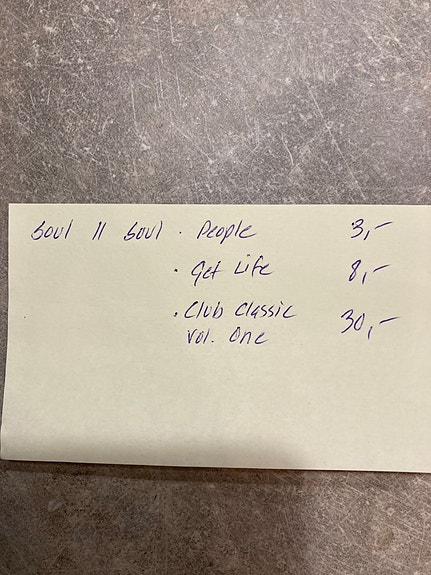 Soul II Soul · People 3,-
· Get Life 8,-
· Club Classic 30,-
Vol. One